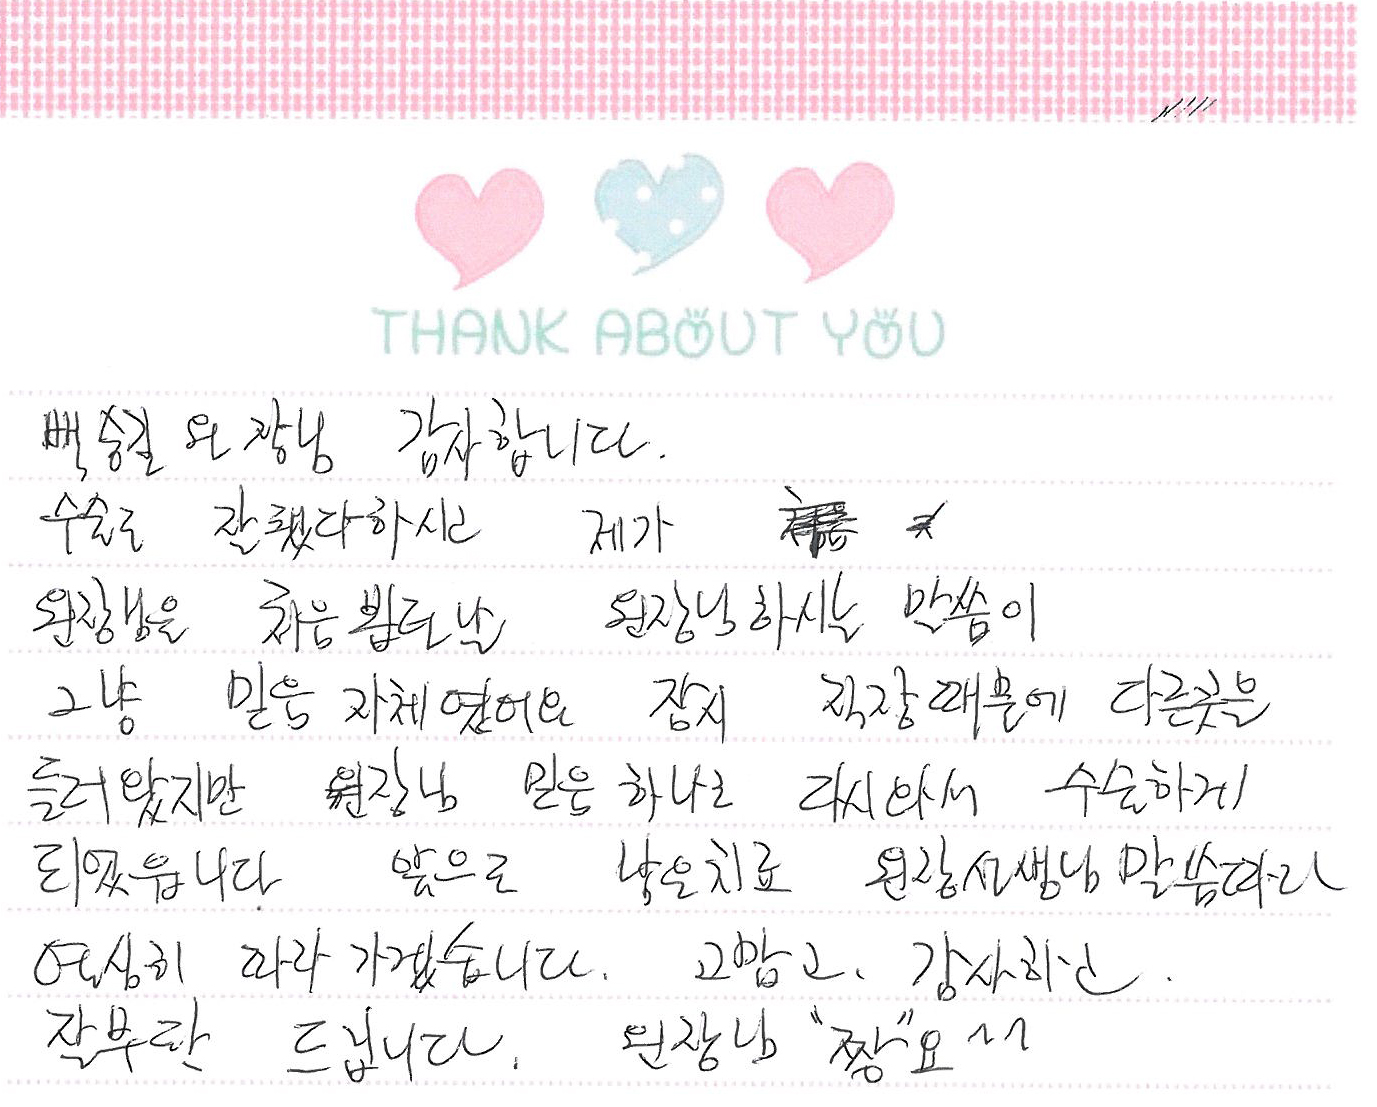 THANK ABOUT YOU
백승길 원장님 감사합니다.
수술로 잘됐다하시니 제가
원장님을 처음 뵙던날 원장님하시는 말씀이
그냥 믿음 자체였어요 잠시 직장때문에 다른곳을
들러왔지만 원장님 믿음 하나로 다시와서 수술하게
되었읍니다 앞으로 남은치료 원장선생님 말씀따라
열심히 따라 가겠습니다. 고맙고. 감사하신.
잘부탁 드립니다. 원장님 "짱"요 ^^